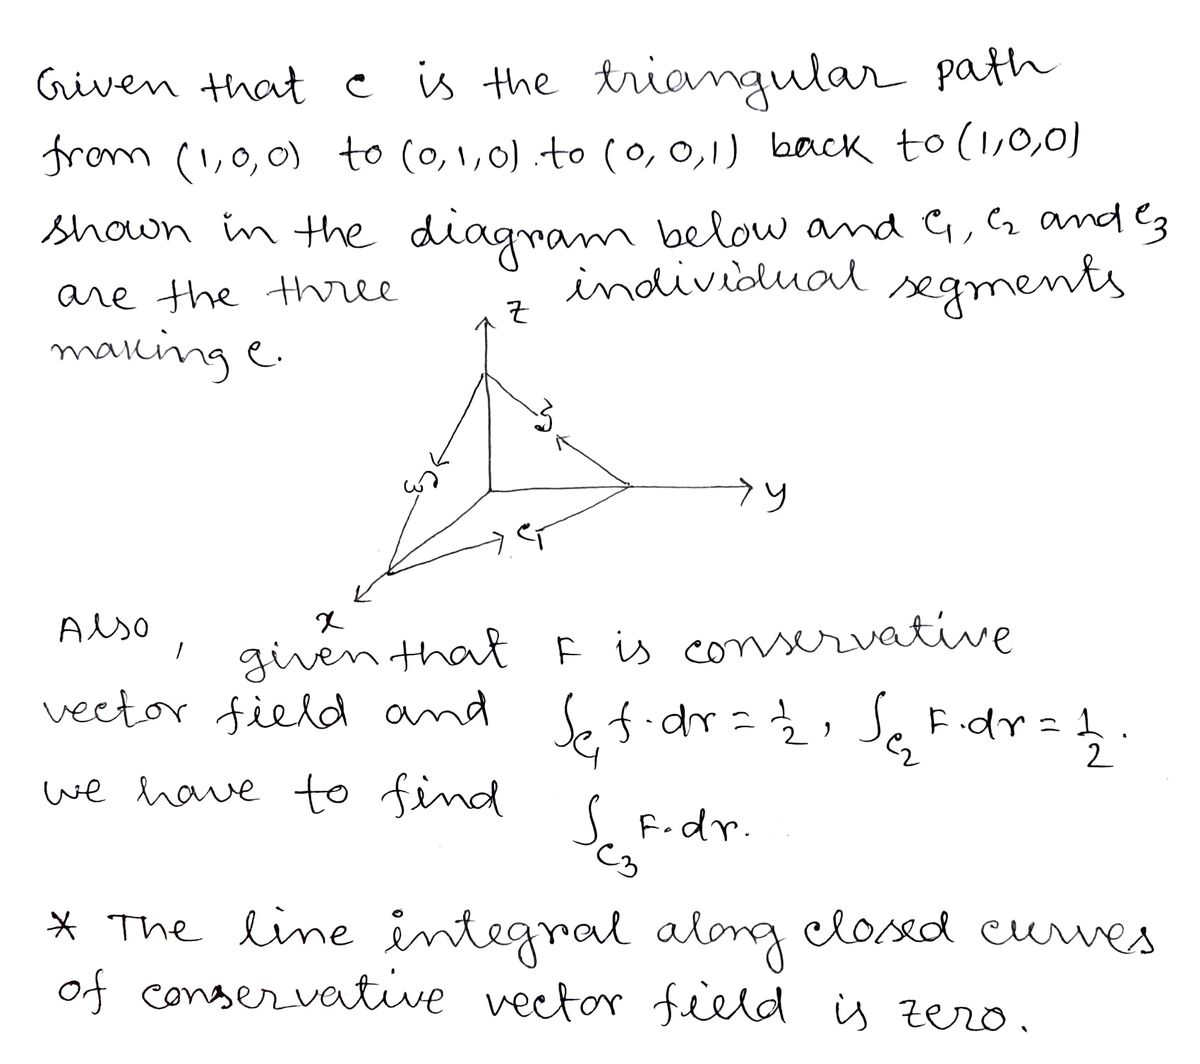 Given that c is the triangular path
from (1,0,0) to (0,1,0).to (0,0,1) back to (1,0,0)
shown in the diagram below and C₁, C₂ and C₃
are the three individual segments
making c.
z
C₂
C₃
y
C₁
x
Also, given that F is conservative
vector field and ∫C₁ f·dr = 1/2, ∫C₂ F·dr = 1/2.
we have to find ∫C₃ F·dr.
* The line integral along closed curves
of conservative vector field is zero.